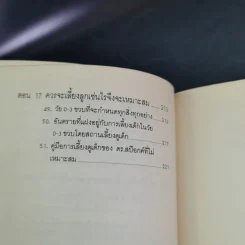 ตอน 17 ควรจะเลี้ยงลูกเช่นไรจึงจะเหมาะสม
49. วัย 0-3 ขวบที่จะกำหนดทุกสิ่งทุกอย่าง
50. อันตรายที่แฝงอยู่กับการเลี้ยงเด็กในวัย
0-3 ขวบโดยสถานเลี้ยงดูเด็ก
51. คู่มือการเลี้ยงดูเด็กของ ดร.สป๊อกค์ที่ไม่
เหมาะสม